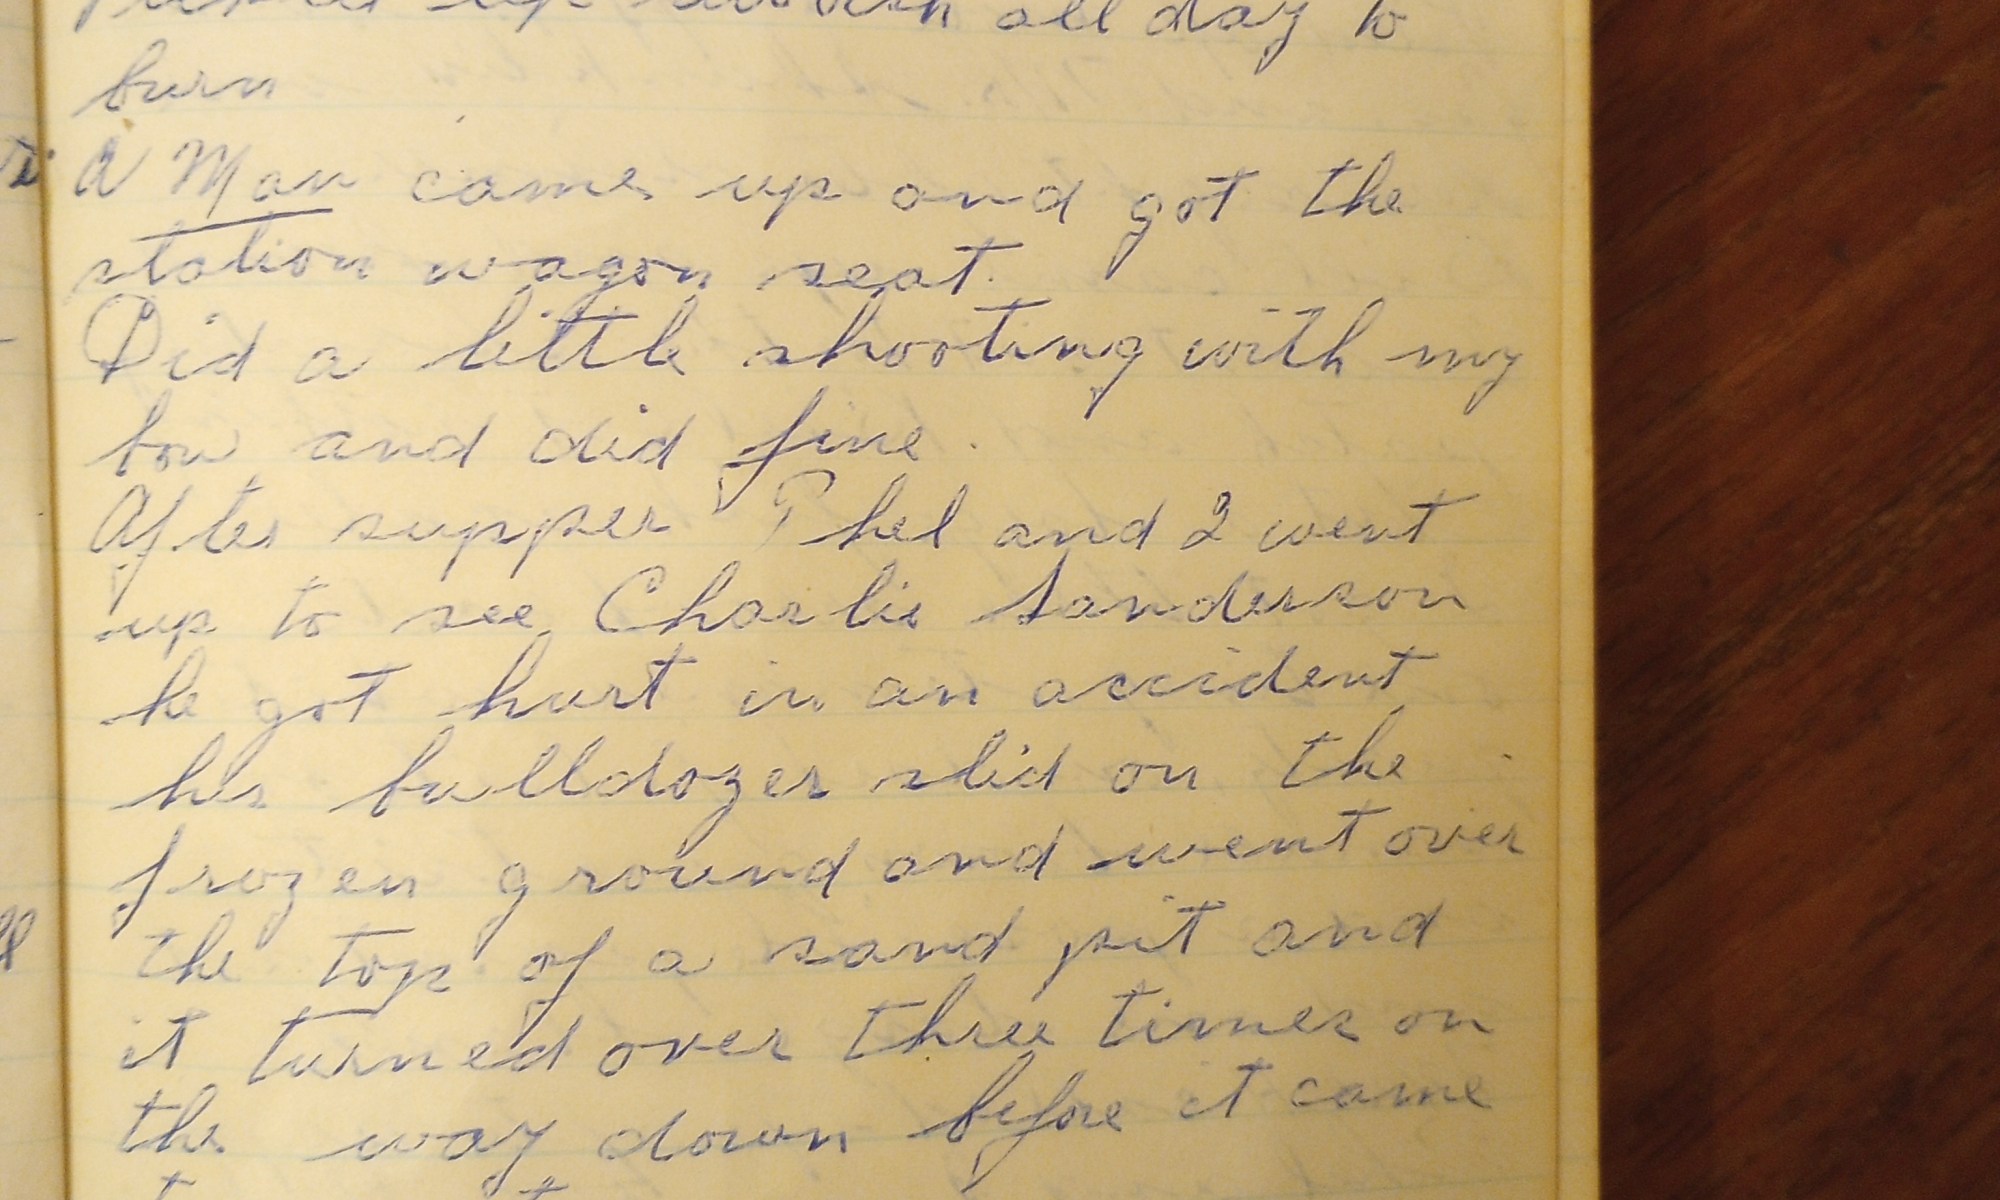 up all day to
burn
A Man came up and got the
station wagon seat.
Did a little shooting with my
bow and did fine.
After supper Phel and I went
up to see Charlie Sanderson
he got hurt in an accident
his bulldozer slid on the
frozen ground and went over
the top of a sand pit and
it turned over three times on
the way down before it came